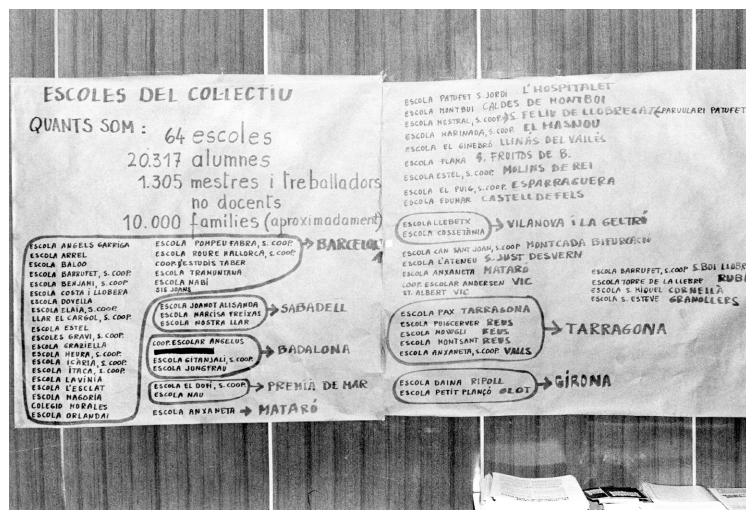 ESCOLES DEL COL·LECTIU
QUANTS SOM :
64 escoles
20.317 alumnes
1.305 mestres i treballadors
no docents
10.000 families (aproximadament)
ESCOLA ANGELS GARRIGA
ESCOLA ARREL
ESCOLA BALOO
ESCOLA BARRUFET, S. COOP.
ESCOLA BENJAMI, S. COOP.
ESCOLA COSTA i LLOBERA
ESCOLA DOVELLA
ESCOLA ELAIA, S. COOP.
LLAR EL CARGOL, S. COOP.
ESCOLA ESTEL
ESCOLES GRAVI, S. COOP.
ESCOLA GRAZIELLA
ESCOLA HEURA, S. COOP.
ESCOLA ICARIA, S. COOP.
ESCOLA ITACA, S. COOP.
ESCOLA LAVINIA
ESCOLA L'ESCLAT
ESCOLA MAGORIA
COLEGIO MORALES
ESCOLA ORLANDAI
ESCOLA POMPEU FABRA, S. COOP.
ESCOLA ROURE MALLORCA, S. COOP.
COOP. D'ESTUDIS TABER
ESCOLA TRAMUNTANA
ESCOLA NABÍ
SIS JOANS
BARCELO
ESCOLA JOANOT ALISANDA
ESCOLA NARCISA FREIXAS
ESCOLA NOSTRA LLAR
SABADELL
COOP. ESCOLAR ANGELUS
ESCOLA GITANJALI, S. COOP.
ESCOLA JUNGFRAU
BADALONA
ESCOLA EL DOFÍ, S. COOP.
ESCOLA NAU
PREMIÀ DE MAR
ESCOLA ANXANETA MATARÓ
ESCOLA PATUFET S. JORDI L'HOSPITALET
ESCOLA MONTBUI CALDES DE MONTBUI
ESCOLA MESTRAL, S. COOP. S. FELIU DE LLOBREGAT (PARVULARI PATUFET
ESCOLA MARINADA, S. COOP. EL MASNOU
ESCOLA EL GINEBRÓ LLINÀS DEL VALLÈS
ESCOLA FLAMA S. FRUITÓS DE B.
ESCOLA ESTEL, S. COOP. MOLINS DE REI
ESCOLA EL PUIG, S. COOP. ESPARRAGUERA
ESCOLA EDUMAR CASTELLDEFELS
ESCOLA LLEBETX
ESCOLA COSSETÀNIA
VILANOVA i LA GELTRÚ
ESCOLA CAN SANT JOAN, S. COOP MONTCADA BIFURCACIÓ
ESCOLA L'ATENEU S. JUST DESVERN
ESCOLA ANXANETA MATARÓ
COOP. ESCOLAR ANDERSEN VIC
ST. ALBERT VIC
ESCOLA BARRUFET, S. COOP S. BOI LLOBR
ESCOLA TORRE DE LA LLEBRE RUBI
ESCOLA S. MIQUEL CORNELLÀ
ESCOLA S. ESTEVE GRANOLLERS
ESCOLA PAX TARRAGONA
ESCOLA PUIGCERVER REUS
ESCOLA MOWGLI REUS
ESCOLA MONTSANT REUS
ESCOLA ANXANETA, S. COOP. VALLS
TARRAGONA
ESCOLA DAINA RIPOLL
ESCOLA PETIT PLANÇÓ OLOT
GIRONA